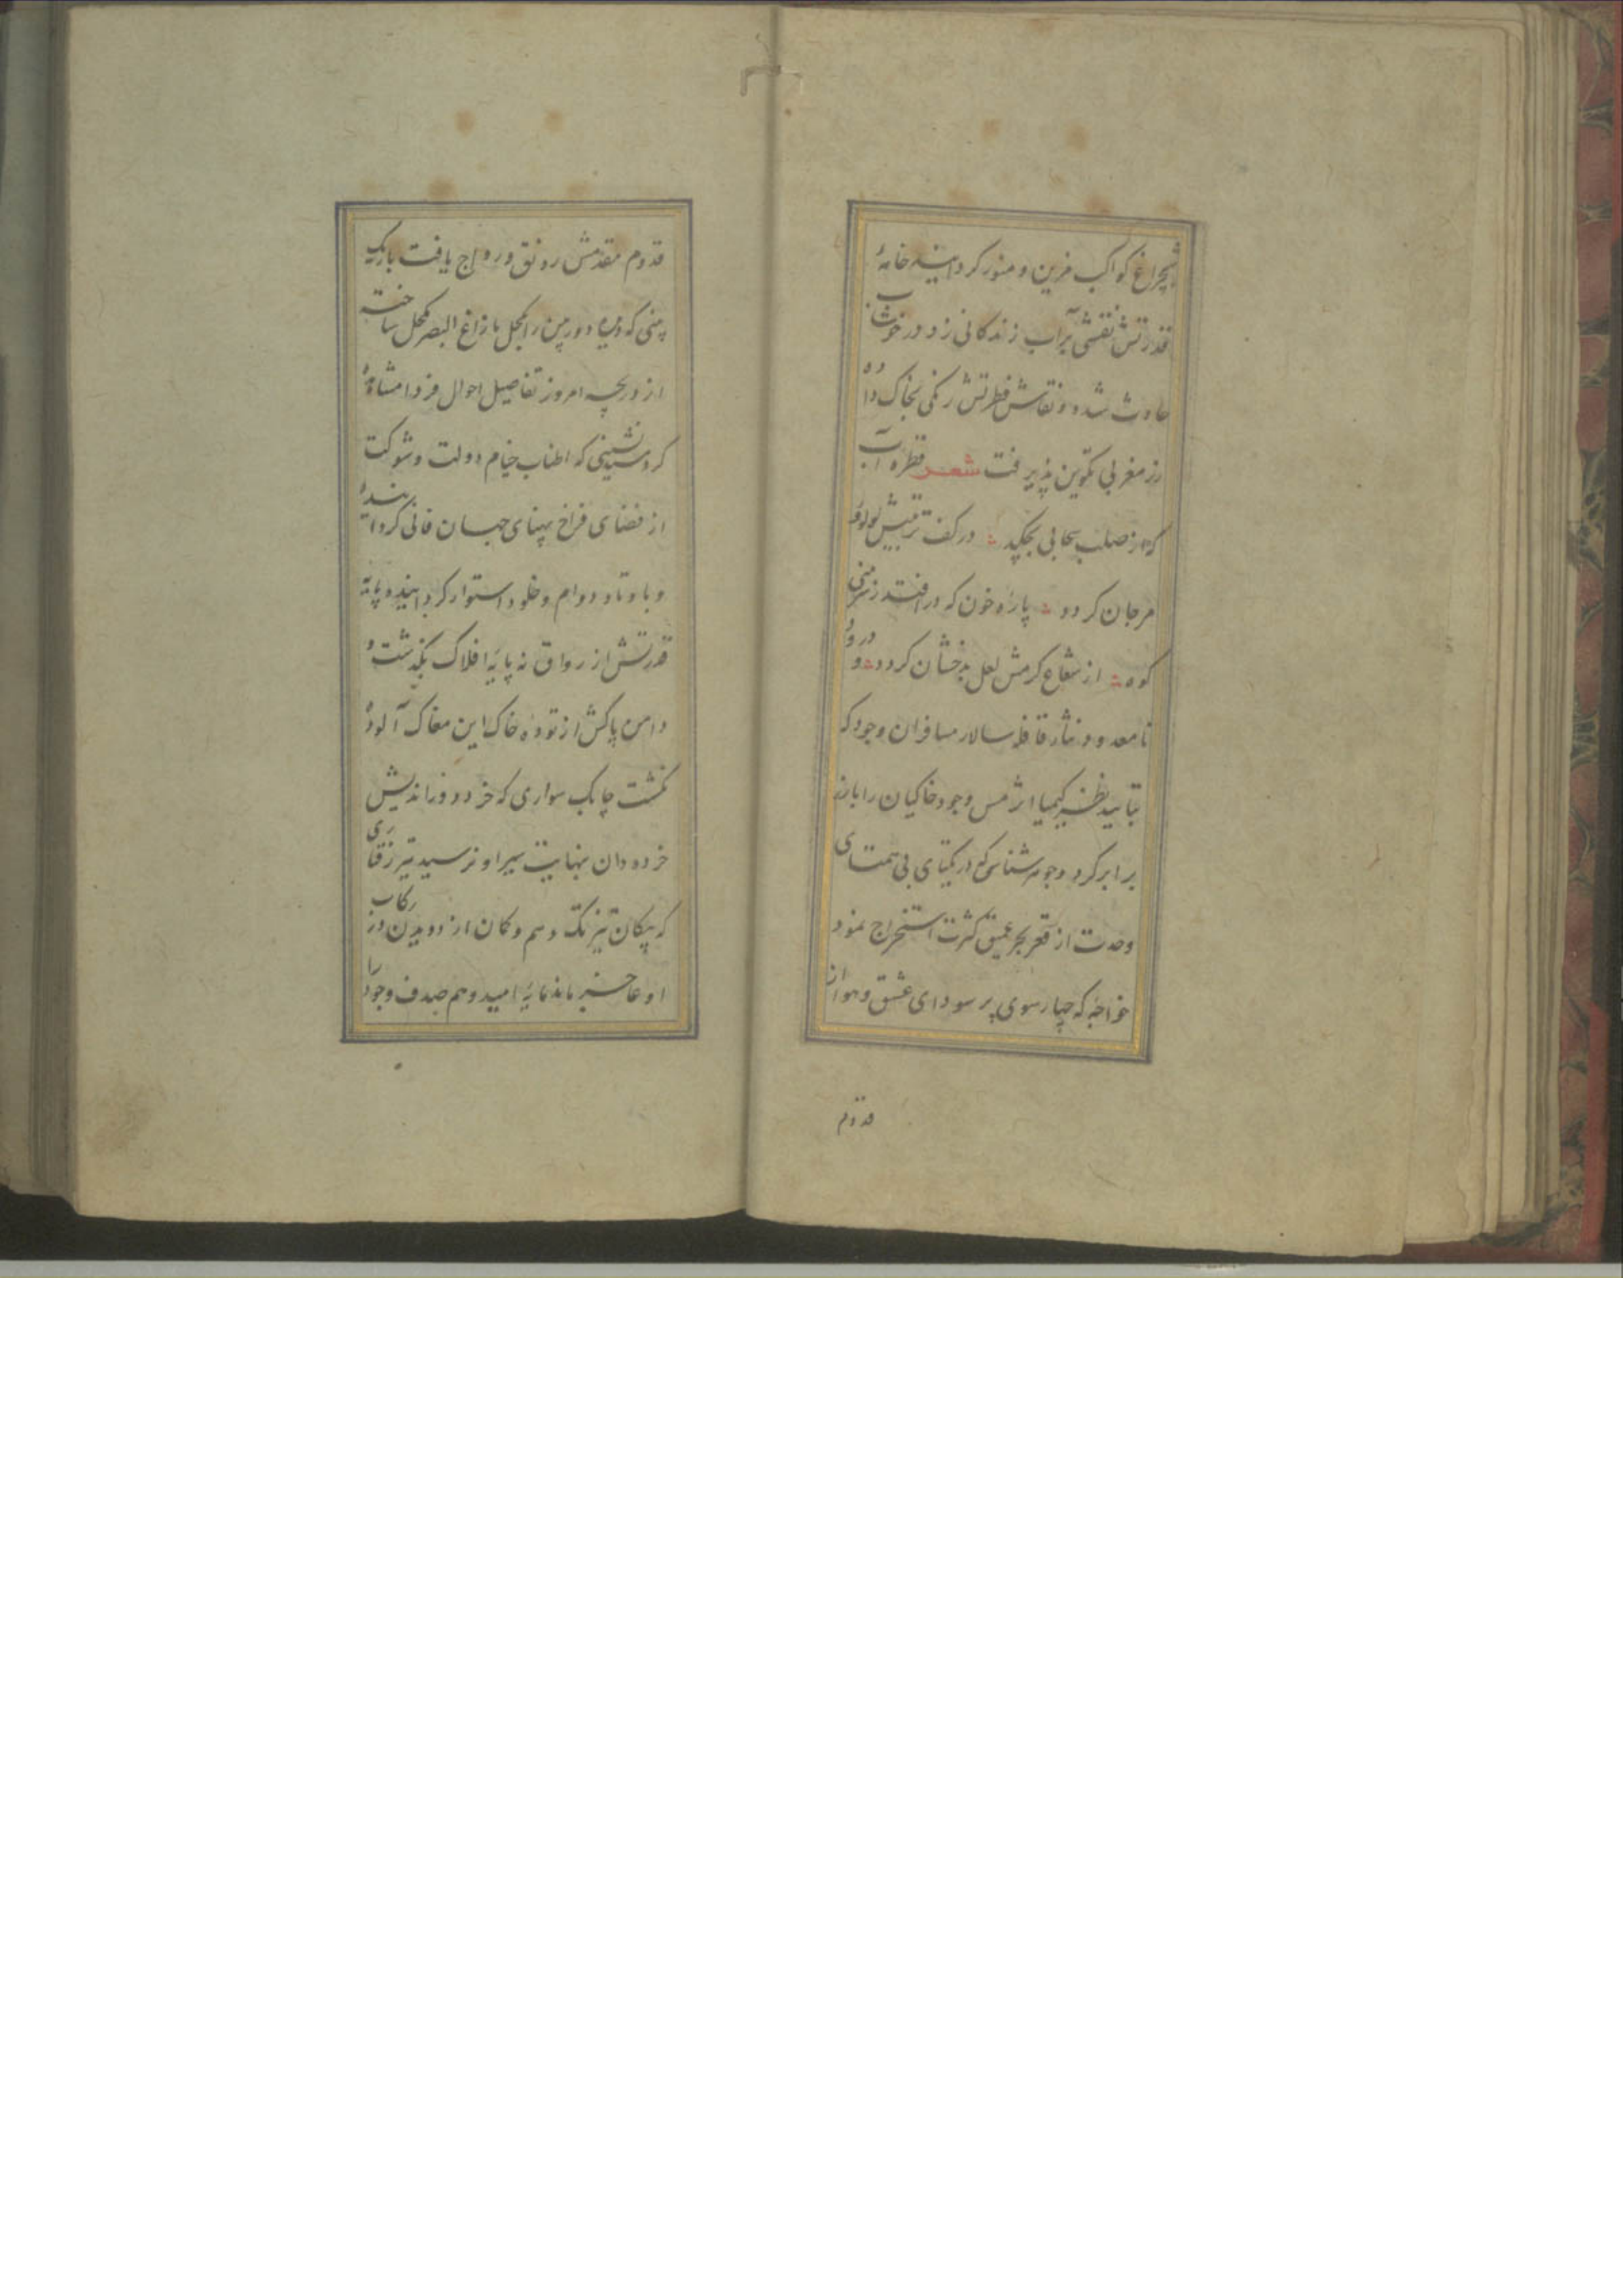 شبچراغ کواکب مزین و منور کردانیده خامهٔ
قدرتش نقشی بر آب زندکانی زد در خوشاب
حادث شد و نقاش فطرتش رنکی بخاک داده
زر مغربی تکوین پذیرفت شعر قطره آب
که از صلب سحابی بچکید در کف تربیتش لولو
مرجان کردد پاره خون که در افتد ز
کوه از شعاع کرمش لعل بدخشان کردد و درود
نامعدود نثار قافله سالار مسافران وجود که
بتابید نظر کیمیا اثر مس وجود خاکیان را با زر
برابر کرد وجوهر شناسی که در یکتای بی همتای
وحدت از قعر بحر عمیق کثرت استخراج نمود
خواجه که چهار سوی پر سودای عشق و هوا از
قدوم
قدوم مقدمش رونق و رواج یافت باریک
بینی که دیده دوربین را بکحل ما زاغ البصر مکحل ساخته
از دریچه امروز تفاصیل احوال فردا مشاهدهٔ
کرد مسندنشینی که اطناب خیام دولت و شوکت
از فضای فراخ پهنای جهان فانی کردانیده
و باوتاد دوام و خلود استوار کردانیده پایه
قدرتش از رواق نه پایهٔ افلاک بگذشت و
دامن پاکش از توده خاک این مغاک آلوده
نکشت چابک سواری که خرد دوراندیش
خرده دان بنهایت سیر او نرسید تیز رفتاری
که پیکان تیزتک وهم و کمان از دویدن در رکاب
او عاجز ماند مایهٔ امید وهم صدف وجود را